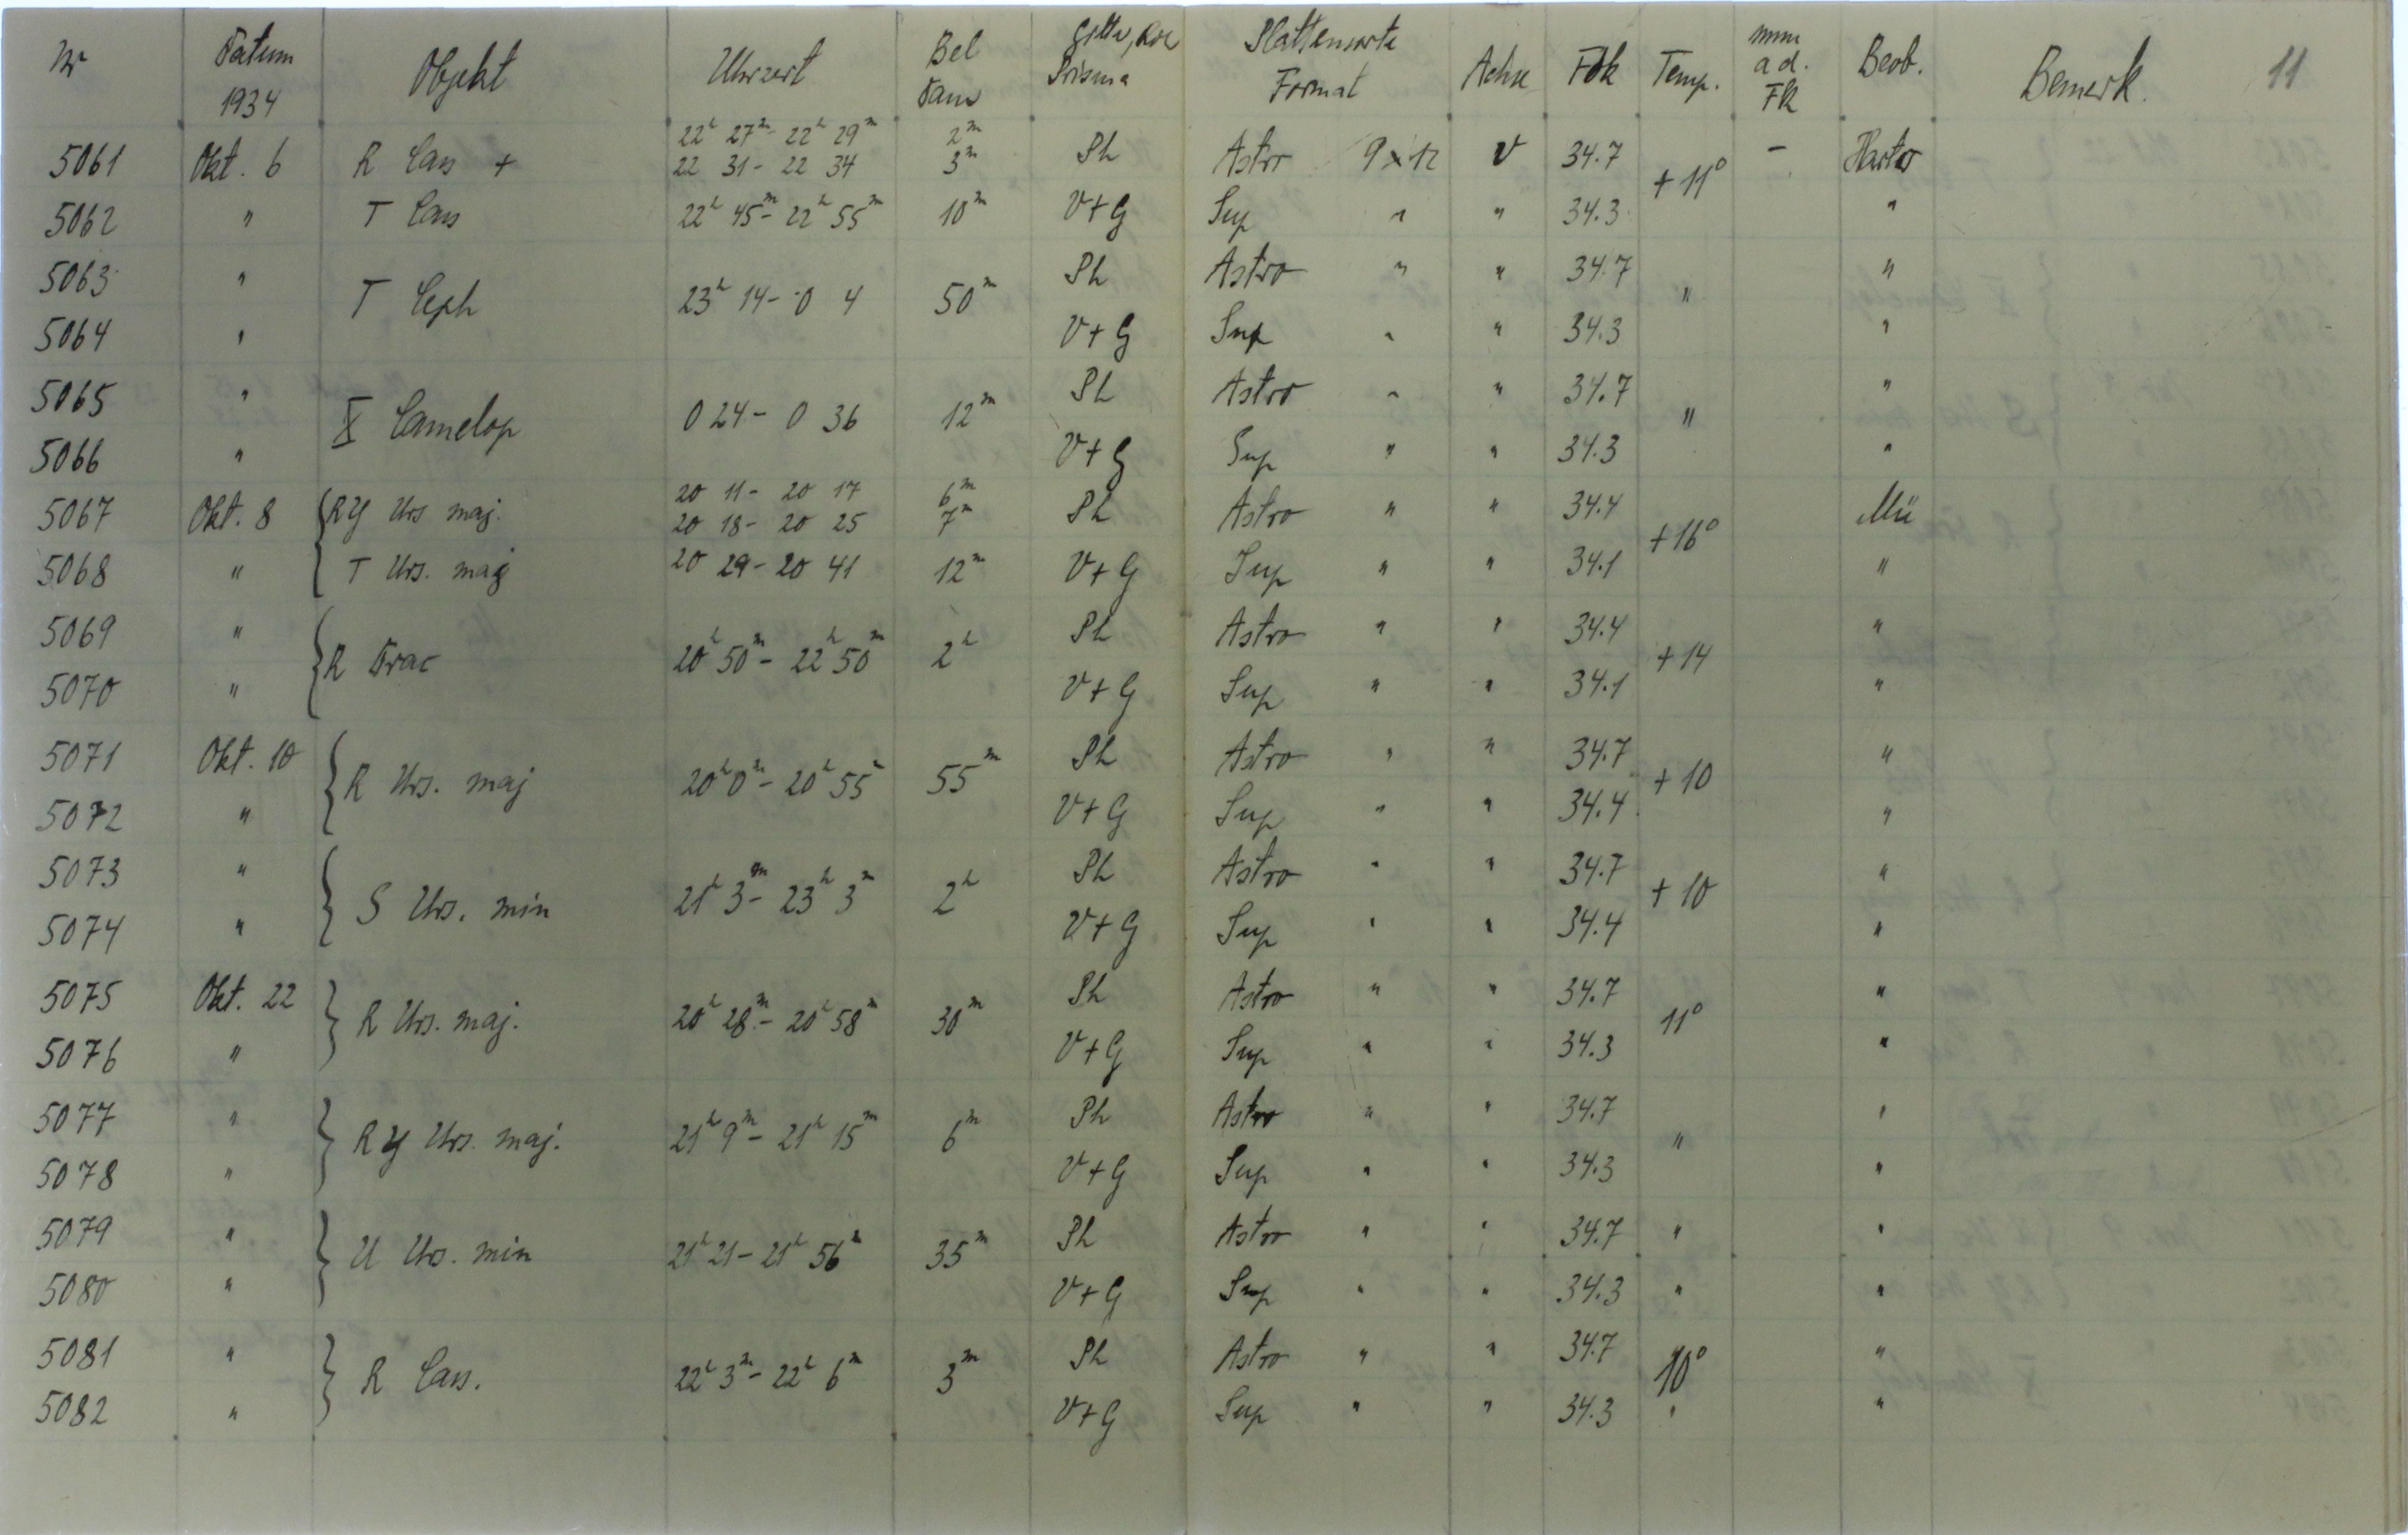 Nr Datum 1934 Objekt Uhrzeit Bel Dau Prisma Plattensorte Format Achse Fok Temp. mm a d. FR Beob. Bemerk. 11
5061 Okt. 6 R Cass + 22h 27m - 22h 29m 2m Ph Astro 9 x 12 V 34.7 + 11° -
22 31 - 22 34 3m
5062 " T Cass 22h 45m - 22h 55m 10m V+G Sup " " 34.3 "
5063 " T Ceph 23h 14 - 0 4 50m Ph Astro " " 34.7 " "
5064 " V+G Sup " " 34.3 "
5065 " X Camelop 0 24 - 0 36 12m Ph Astro " " 34.7 " "
5066 " V+G Sup " " 34.3 "
5067 Okt. 8 { RY Urs maj. 20 11 - 20 17 6m Ph Astro " " 34.4 + 16° Mü
20 18 - 20 25 7m
5068 " T Urs. maj 20 29 - 20 41 12m V+G Sup " " 34.1 "
5069 " { R Drac 20h 50m - 22h 50m 2h Ph Astro " " 34.4 + 14 "
5070 " V+G Sup " " 34.1 "
5071 Okt. 10 { R Urs. maj 20h 0m - 20h 55m 55m Ph Astro " " 34.7 + 10 "
5072 " V+G Sup " " 34.4 "
5073 " { S Urs. min 21h 3m - 23h 3m 2h Ph Astro " " 34.7 + 10 "
5074 " V+G Sup " " 34.4 "
5075 Okt. 22 } R Urs. maj. 20h 28m - 20h 58m 30m Ph Astro " " 34.7 11° "
5076 " V+G Sup " " 34.3 "
5077 " } RY Urs. maj. 21h 9m - 21h 15m 6m Ph Astro " " 34.7 " "
5078 " V+G Sup " " 34.3 "
5079 " } U Urs. min 21h 21 - 21h 56m 35m Ph Astro " " 34.7 " "
5080 " V+G Sup " " 34.3 " "
5081 " } R Cass. 22h 3m - 22h 6m 3m Ph Astro " " 34.7 10° "
5082 " V+G Sup " " 34.3 " "